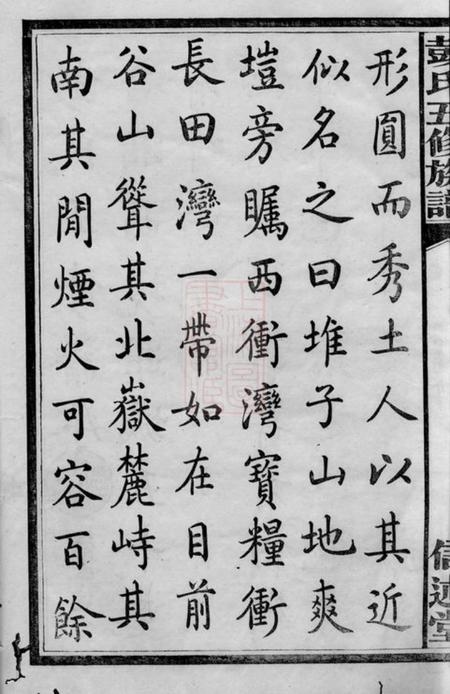 彭氏五修族譜
信述堂
形圓而秀土人以其近
似名之曰堆子山地爽
塏旁矚西衝灣寶糧衝
長田灣一帶如在目前
谷山聳其北嶽麓峙其
南其閒煙火可容百餘